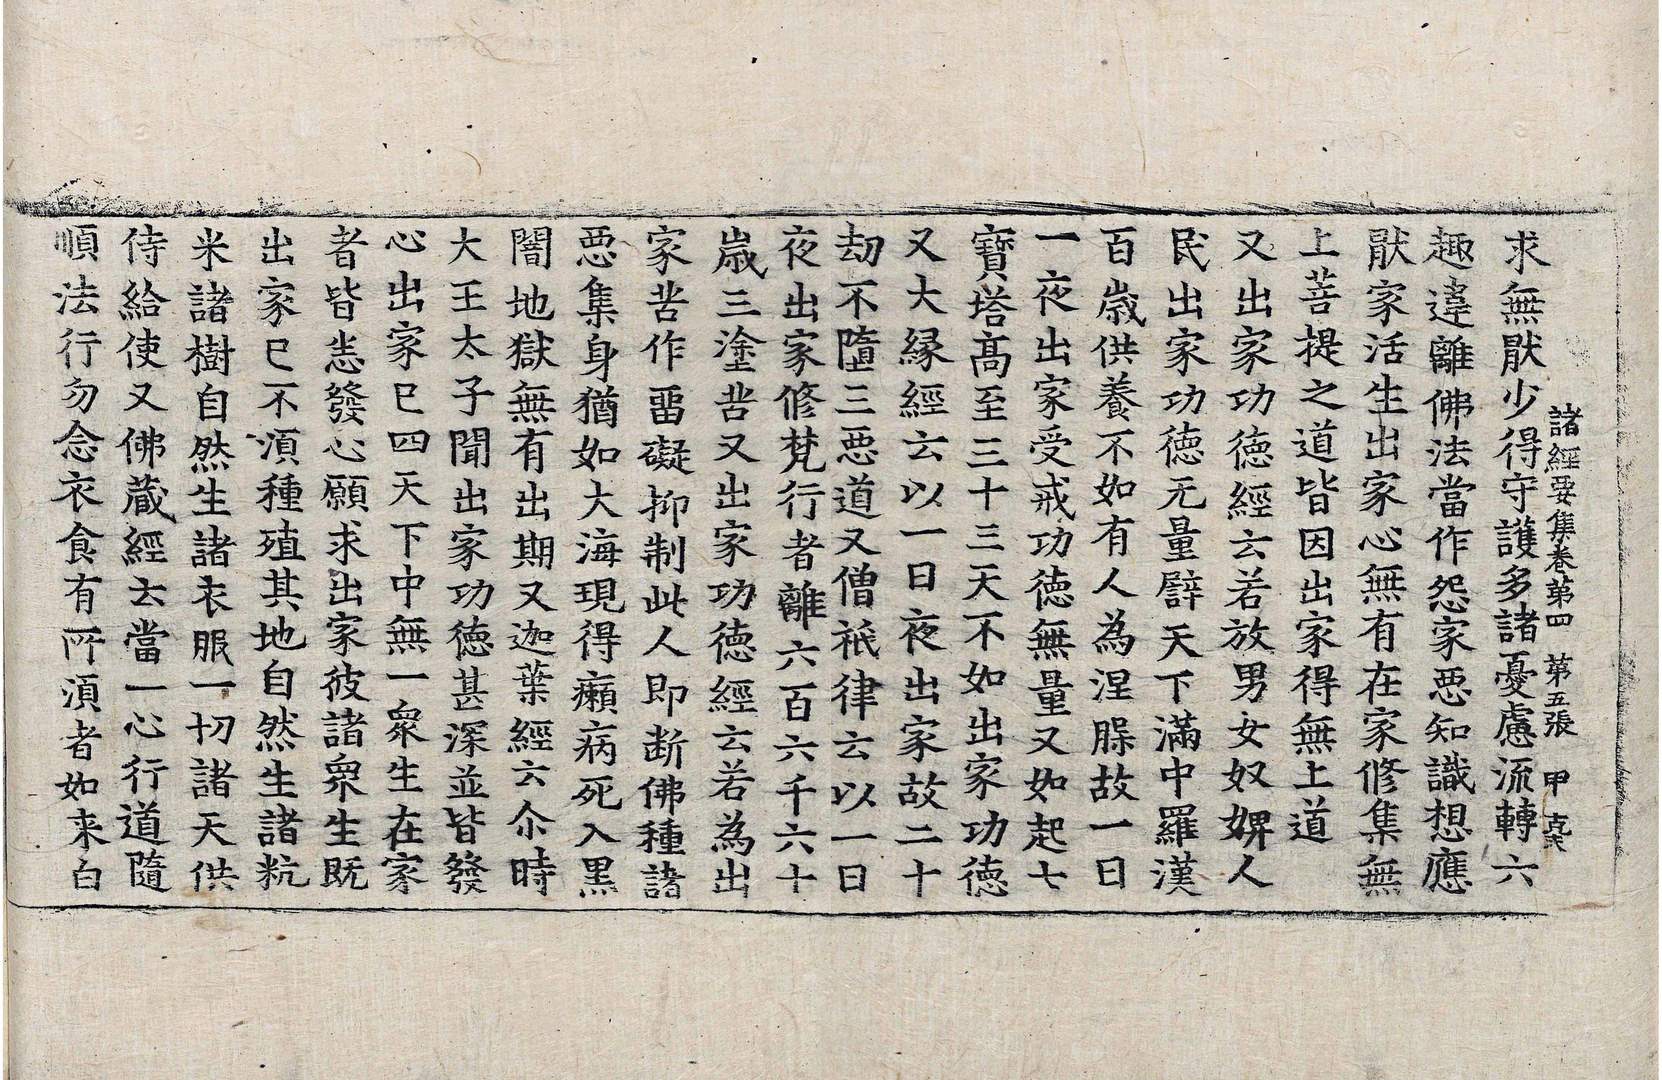 諸經要集卷第四 第五張 甲
求無猒少得守護多諸憂慮流轉六
趣違離佛法當作怨家惡知識想應
猒家活生出家心無有在家修集無
上菩提之道皆因出家得無上道
又出家功德經云若放男女奴婢人
民出家功德无量譬天下滿中羅漢
百歲供養不如有人為涅槃故一日
一夜出家受戒功德無量又如起七
寶塔高至三十三天不如出家功德
又大緣經云以一日夜出家故二十
劫不墮三惡道又僧祇律云以一日
夜出家修梵行者離六百六千六十
歲三塗苦又出家功德經云若為出
家苦作留礙抑制此人即斷佛種諸
惡集身猶如大海現得癩病死入黑
闇地獄無有出期又迦葉經云尒時
大王太子聞出家功德甚深並皆發
心出家已四天下中無一衆生在家
者皆悉發心願求出家彼諸衆生既
出家已不湏種殖其地自然生諸粇
米諸樹自然生諸衣服一切諸天供
侍給使又佛藏經云當一心行道隨
順法行勿念衣食有所湏者如来白